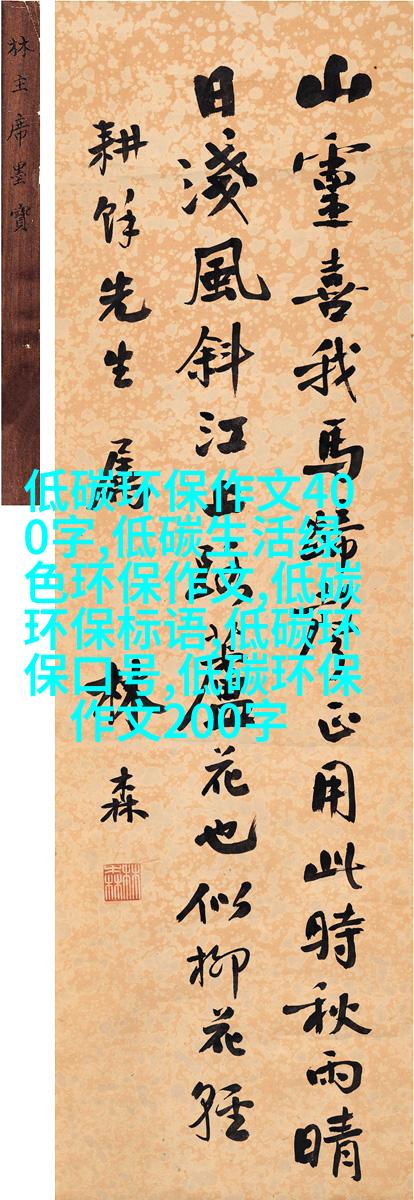 山靈喜我馬蹄聲正用此時秋雨晴
日淺風斜江上路蘆花也似柳花輕
耕餘先生 屬 林森
林主席墨寶
低碳环保作文40
0字,低碳生活绿
色环保作文,低碳
环保标语,低碳环
保口号,低碳环保
作文200字